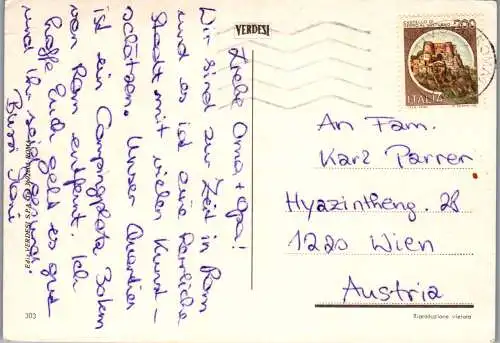 Liebe Oma + Opa!
Wir sind zur Zeit in Rom
und es ist eine herrliche
Stadt mit vielen Kunst-
schätzen. Unser Quartier
ist ein Campingplatz 30km
von Rom entfernt. Ich
hoffe Euch geht es gut
und Ihr seid
Bussi
VERDESI
200
CASTELLO DI
ITALIA
An Fam.
Karl Parrer
Hyazintheng. 28
1220 Wien
Austria
303
Riproduzione vietata